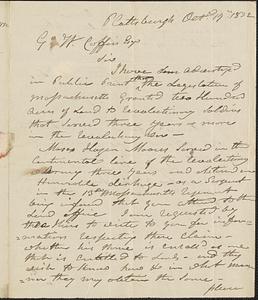 Plattsburgh Oct 19th 1832
G. W. Coffin Esqr
Sir
I have seen advertised
in Public Print that the Legislature of
Massachusetts Granted two Hundred
Acres of Land to Revolutionary Soldiers
that Served three years or more
in the Revolutionary War —
Moses Served in the
Continental line of the Revolutionary
three years and obtained an
Honorable discharge as a Sergeant
in the 15th Massachusetts Regiment
being informed that you attend to the
Land office I am requested by
the heirs to write to you for infor-
mation respecting their Claim —
whether his heirs is entitled as one
that is entitled to Land — and they
wish to know how or in what man-
ner they may obtain the same.
please